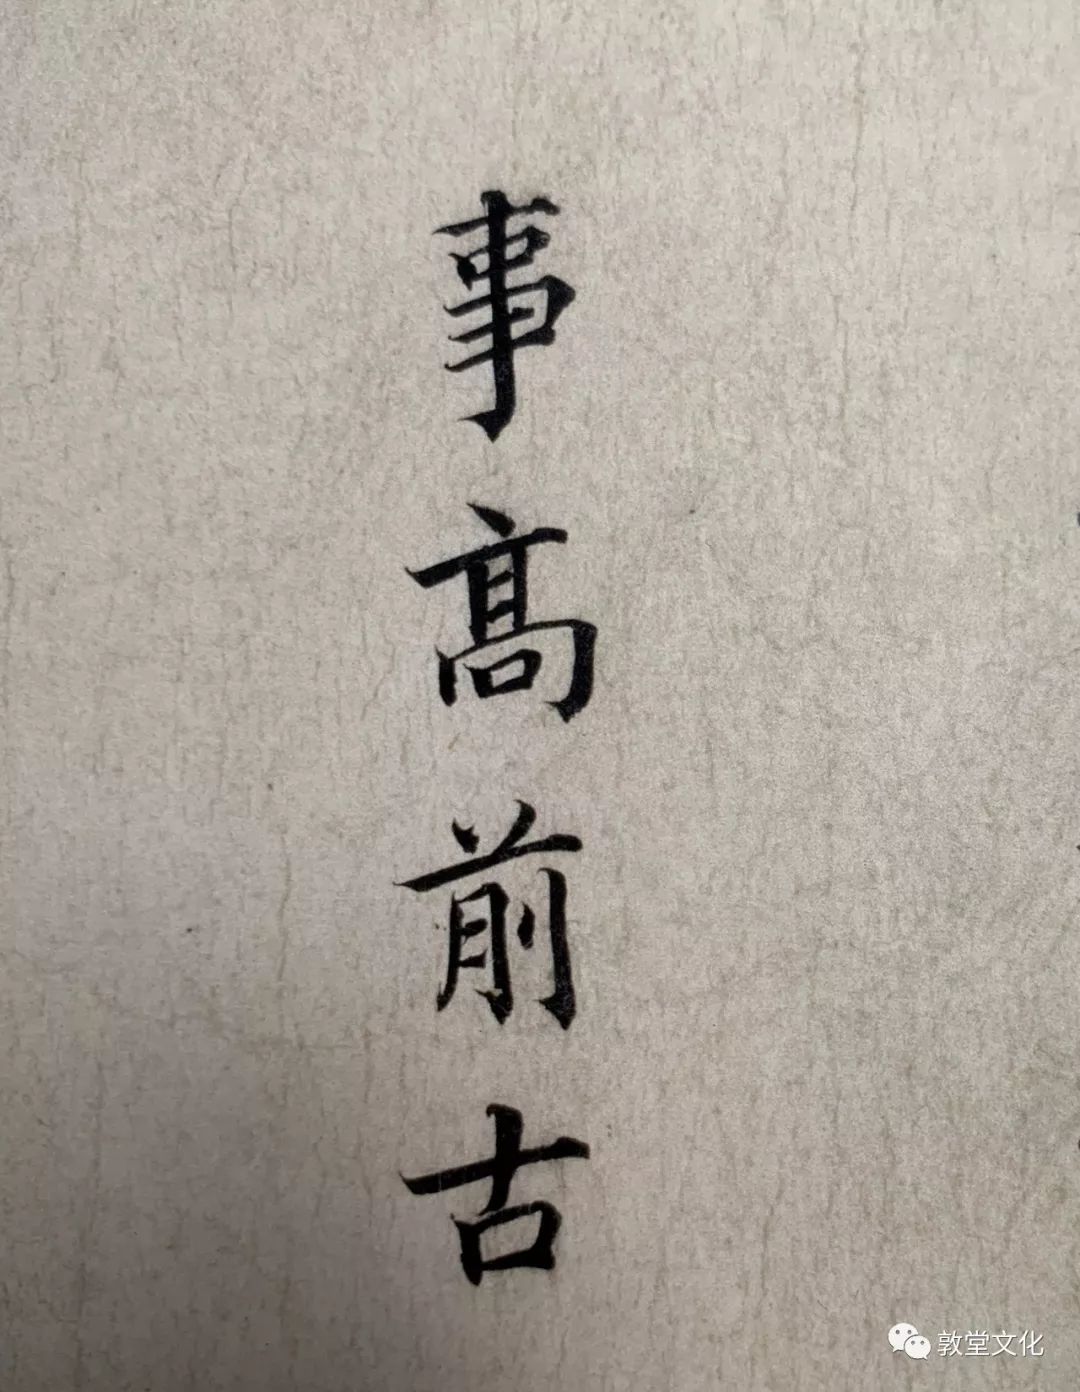 事髙前古
敦堂文化